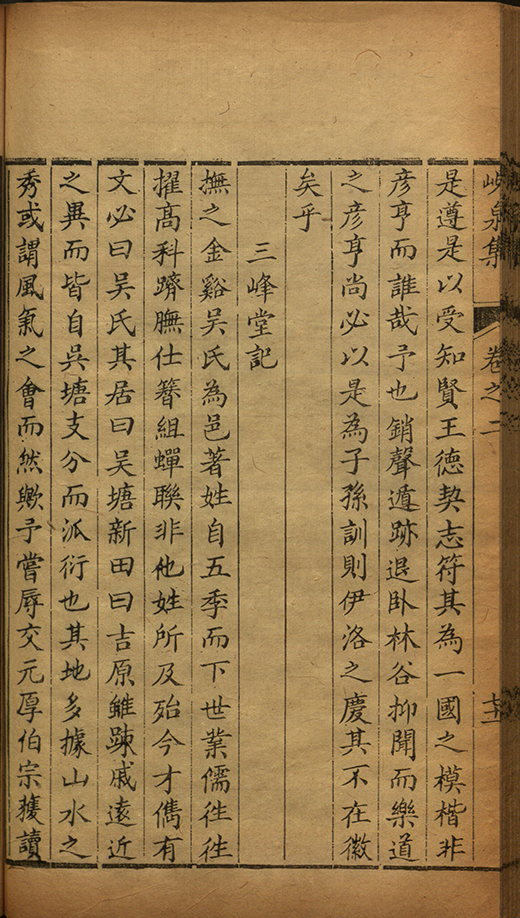 峴泉集 卷之二
是遵是以受知賢王德契志符其為一國之模楷非
彥亨而誰哉予也銷聲遁跡退臥林谷抑聞而樂道
之彥亨尚必以是為子孫訓則伊洛之慶其不在徽
矣乎
三峰堂記
撫之金谿吳氏為邑著姓自五季而下世業儒徃徃
擢高科躋膴仕簪組蟬聯非他姓所及殆今才儁有
文必曰吳氏其居曰吳塘新田曰吉原雖踈戚遠近
之異而皆自吳塘支分而派衍也其地多據山水之
秀或謂風氣之會而然歟予嘗辱交元厚伯宗獲讀